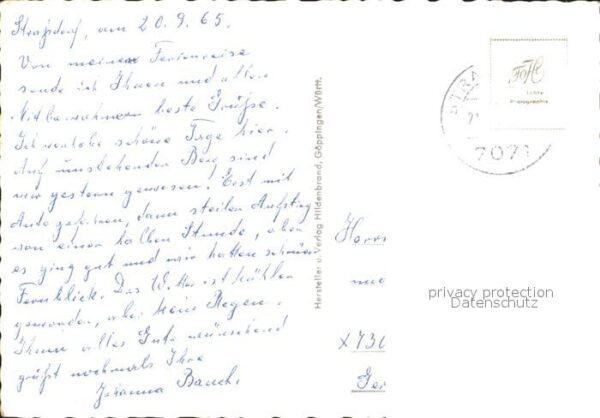 Straßdorf, am 20.9.65.
Von meiner Ferienreise
sende ich Ihnen und allen
Mitbewohnern beste Grüße.
Ich verlebe schöne Tage hier.
Auf umstehenden Berg sind
wir gestern gewesen! Erst mit
Auto gefahren, dann steilen Aufstieg
von einer halben Stunde, aber
es ging gut und wir hatten schönen
Fernblick. Das Wetter ist kühler
geworden, aber kein Regen.
Ihnen alles Gute wünschend
grüßt nochmals Ihre
Johanna Bauch.
Hersteller u. Verlag Hildenbrand, Göppingen/Württ.
7071
Echte
Photographie
Herrn
privacy protection
Datenschutz
X 730
Ger